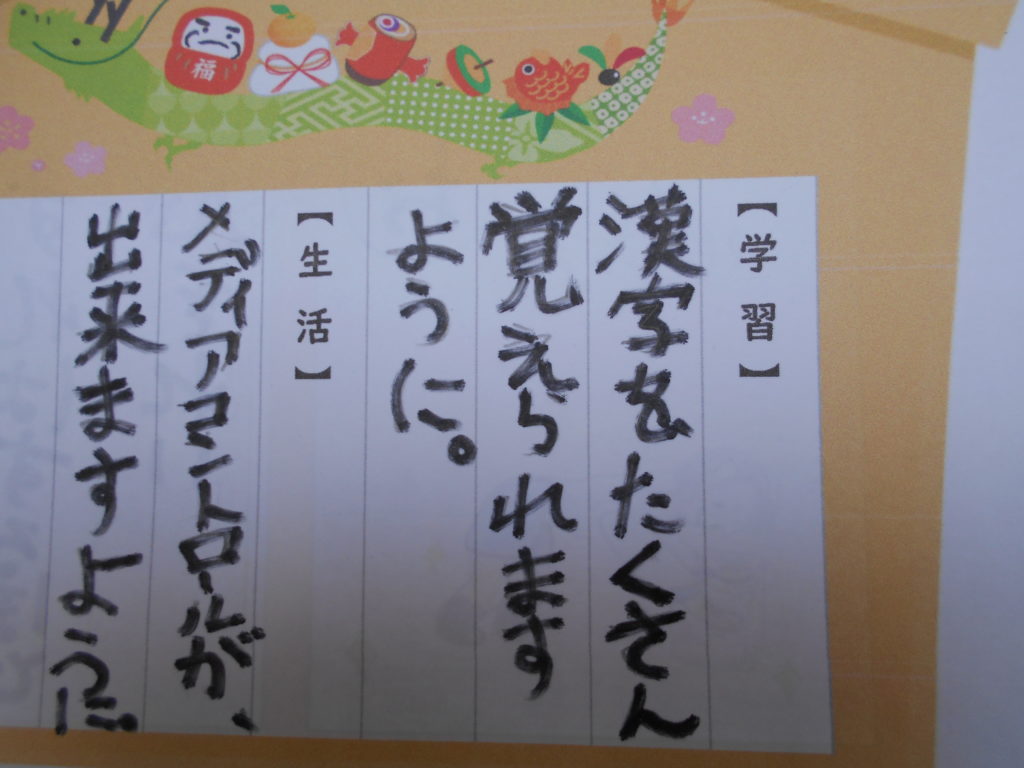 福
【学習】
漢字をたくさん
覚えられます
ように。
【生活】
メディアコントロールが、
出来ますように。